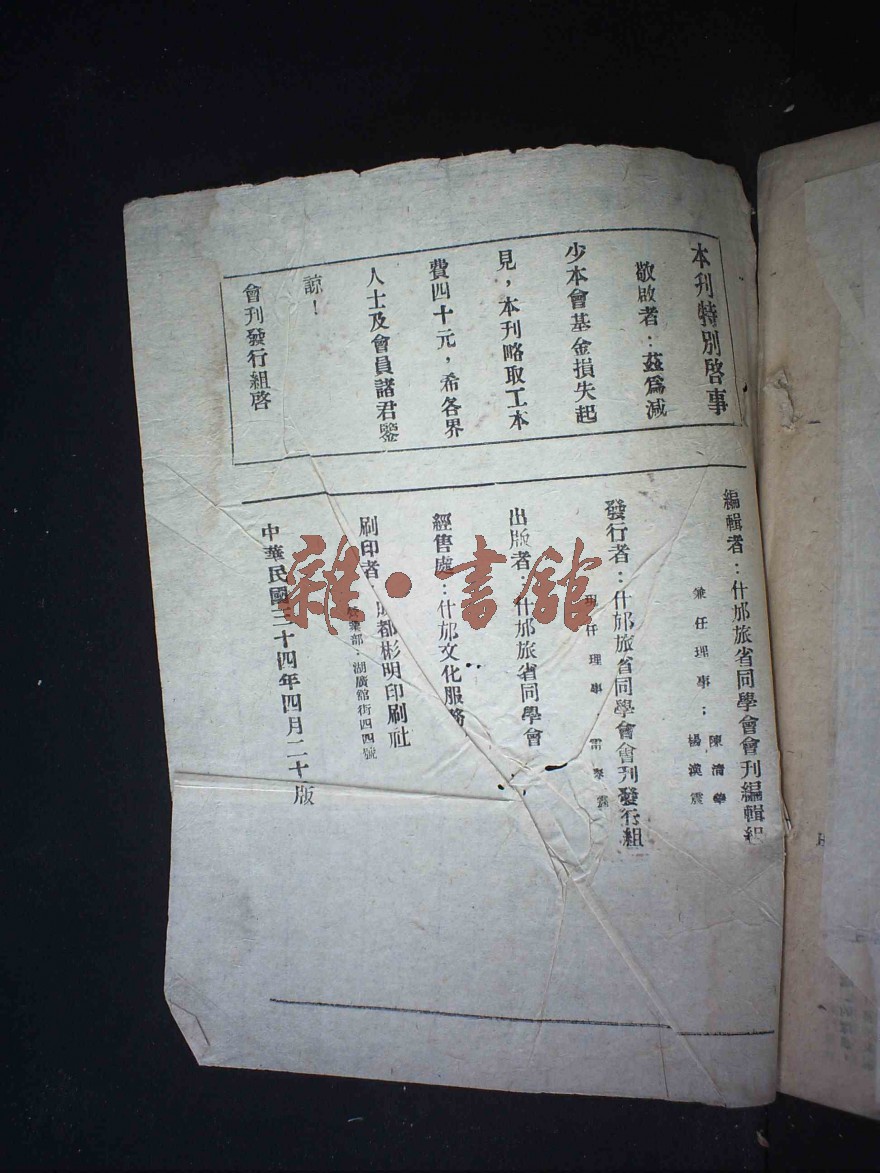 本刋特別啓事
敬啟者：茲爲減
少本會基金損失起
見，本刋略取工本
費四十元，希各界
人士及會員諸君鑒
諒！
會刋發行組啓
編輯者：什邡旅省同學會會刋編輯組
兼任理事；
陳清華
楊漢震
發行者：什邡旅省同學會會刋發行組
任理事
雷
出版者：什邡旅省同學會
經售處：什邡文化服務
刷印者 都彬明印刷社
業部：湖廣舘街四四號
中華民國三十四年四月二十版
雜·書館